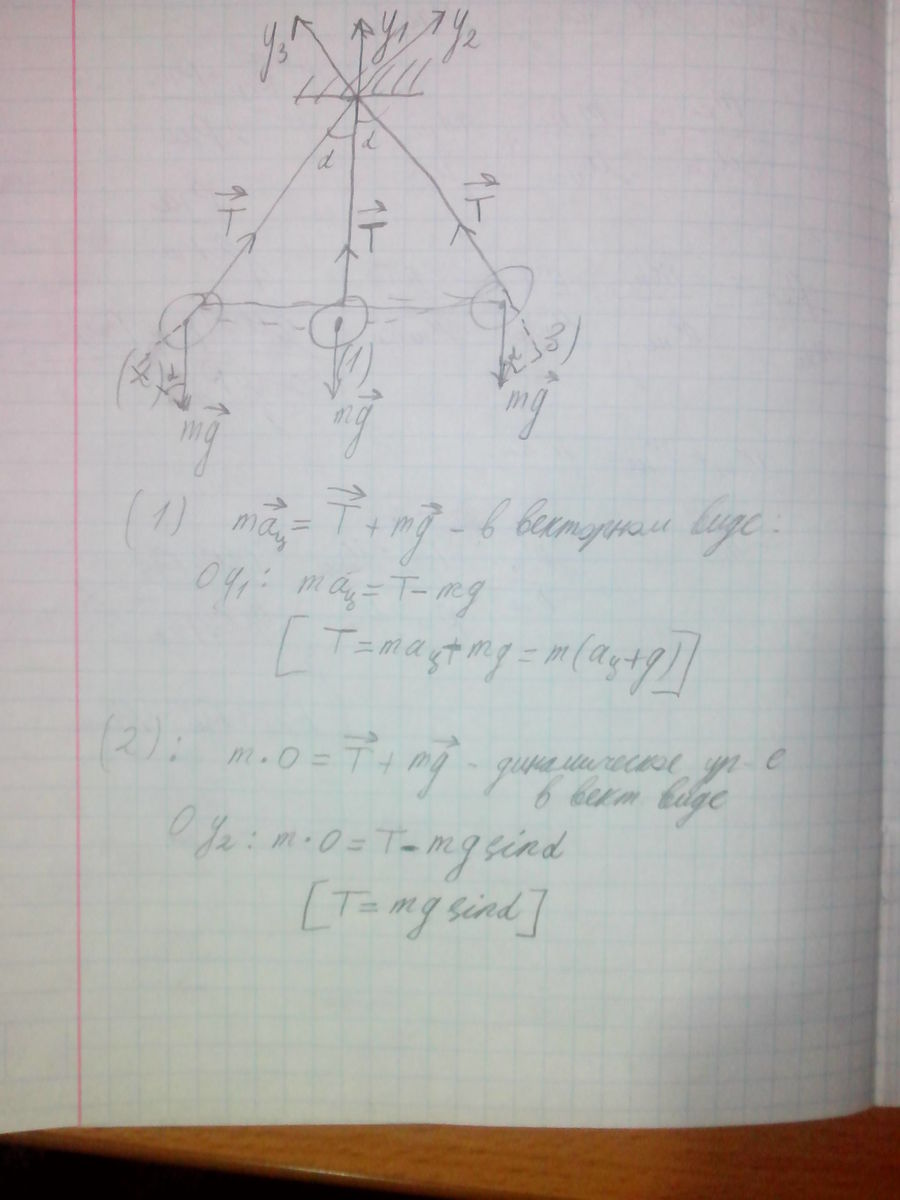 y₃ y₁ y₂
α α
T⃗ T⃗ T⃗
(2) α (1) α 3)
mg⃗ mg⃗ mg⃗
(1) ma⃗ц = T⃗ + mg⃗ - в векторном виде:
Oy₁: maц = T - mg
[T = maц + mg = m(aц + g)]
(2): m·0 = T⃗ + mg⃗ - динамическое ур-е
в вект виде
Oy₂: m·0 = T - mg sinα
[T = mg sinα]